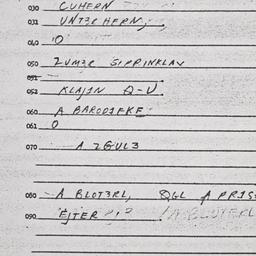 030 CUHERN
031 UNT3R HERN,
040 'O
050 ZUM3R SIPRINKLAV
051
052 KLAJIN Q-U
060 A BARODIEKE
061 O
070 A ZGUL3
080 A BLOT3RL, QGL A PRIS
090 EJTER